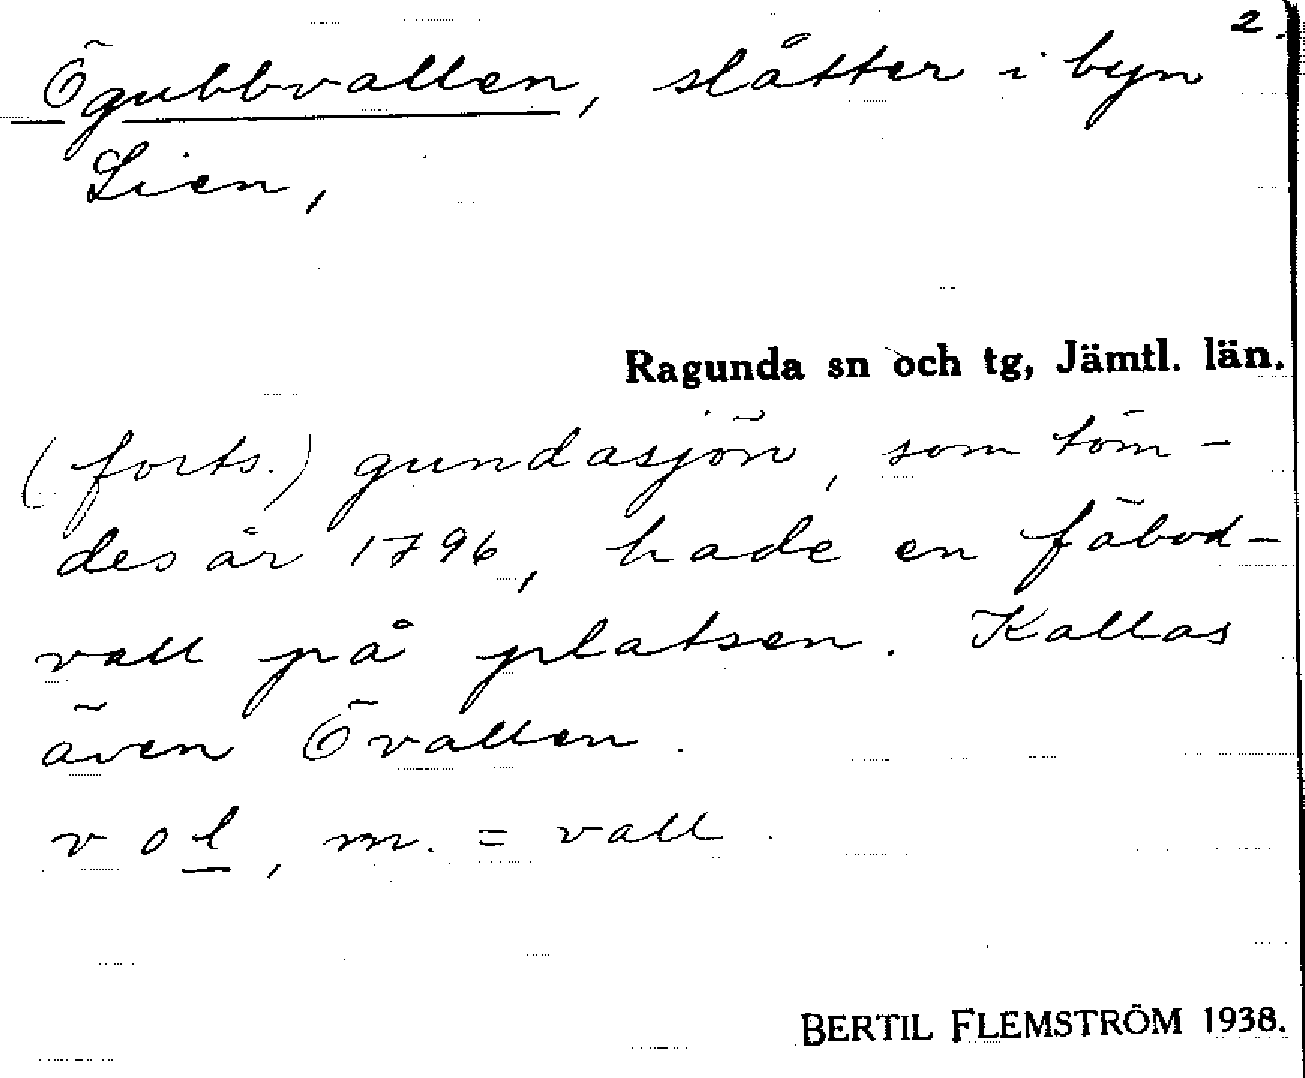 2.
Ögubbvallen, slåtter i byn
Lien,
Ragunda sn och tg, Jämtl. län.
(forts.) gundasjön, som töm-
des år 1796, hade en fäbod-
vall på platsen. Kallas
även Övallen.
vol, m. = vall.
BERTIL FLEMSTRÖM 1938.